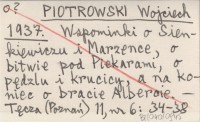 o? PIOTROWSKI Wojciech
1937. Wspominki o Sien-
kiewiczu i Marzence, o
bitwie pod Piekarami, o
pędzlu i krucicy, a na ko-
niec o bracie Albercie. —
Tęcza (Poznań) 11, nr 6: 34-38